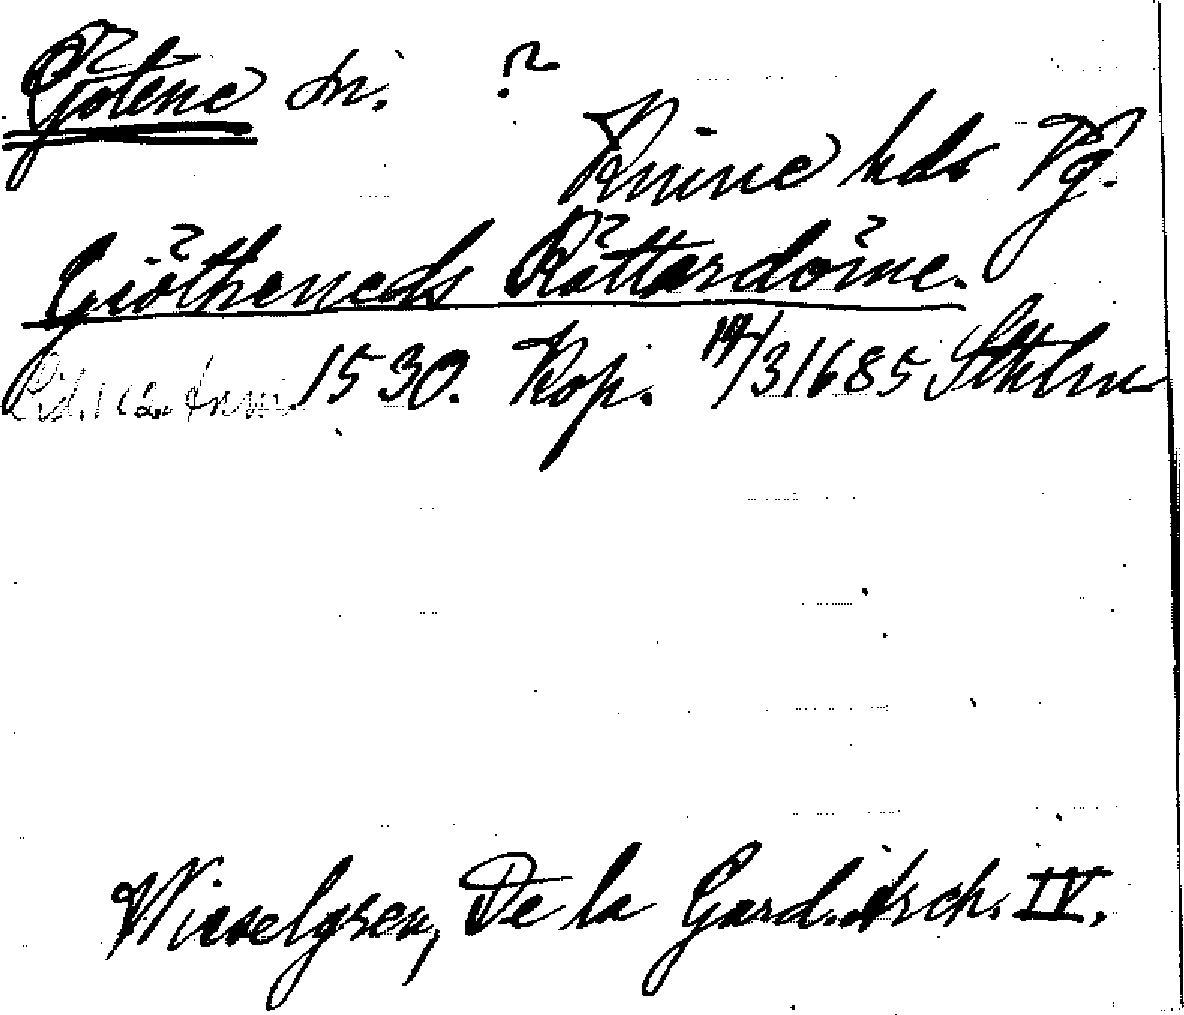 Götene sn. ?
Kinne hds Vg.
Giötheneds Rättardöme.
1530. Kop. 19/3 1685 Sthlm
Wieselgren, De la Gard. Arch. IV.